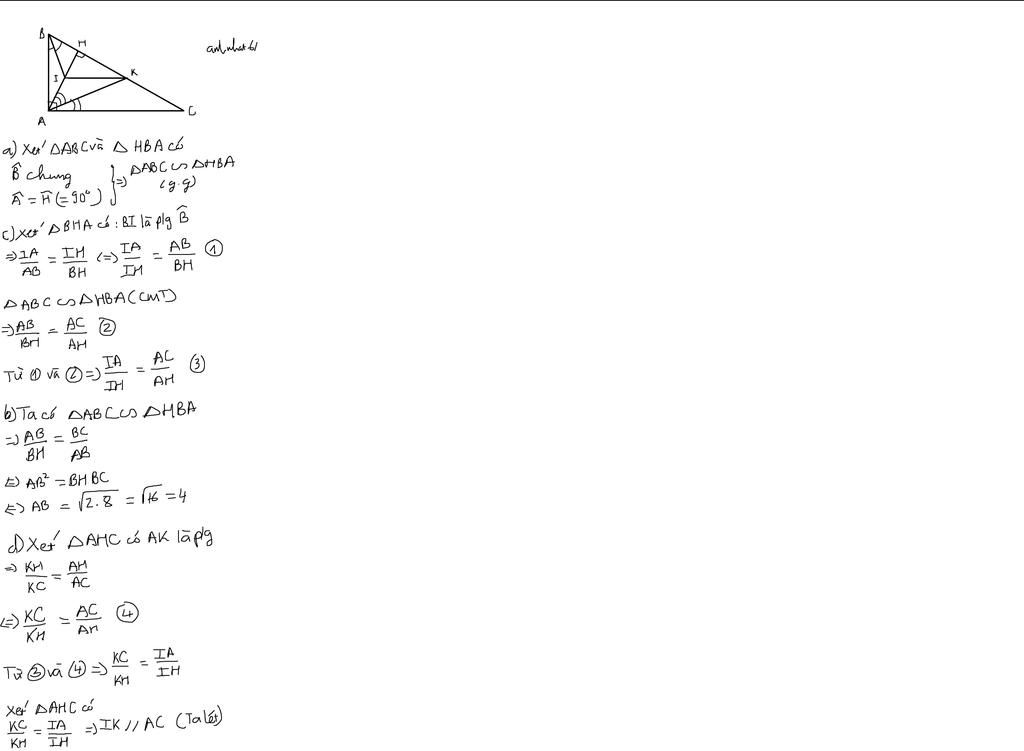 B
H
I
K
A
C
a) Xét ΔABC và Δ HBA có
B̂ chung
Â = Ĥ (= 90°) } => ΔABC ∽ ΔHBA (g.g)
c) Xét ΔBHA có: BI là p/g B̂
=> IA/AB = IH/BH <=> IA/IH = AB/BH ①
ΔABC ∽ ΔHBA (CMT)
=> AB/BH = AC/AH ②
Từ ① và ② => IA/IH = AC/AH ③
b) Ta có ΔABC ∽ ΔHBA
=> AB/BH = BC/AB
<=> AB² = BH BC
<=> AB = √2.8 = √16 = 4
d) Xét ΔAHC có AK là p/g
=> KH/KC = AH/AC
<=> KC/KH = AC/AH ④
Từ ③ và ④ => KC/KH = IA/IH
Xét ΔAHC có
KC/KH = IA/IH => IK // AC (Ta lét)